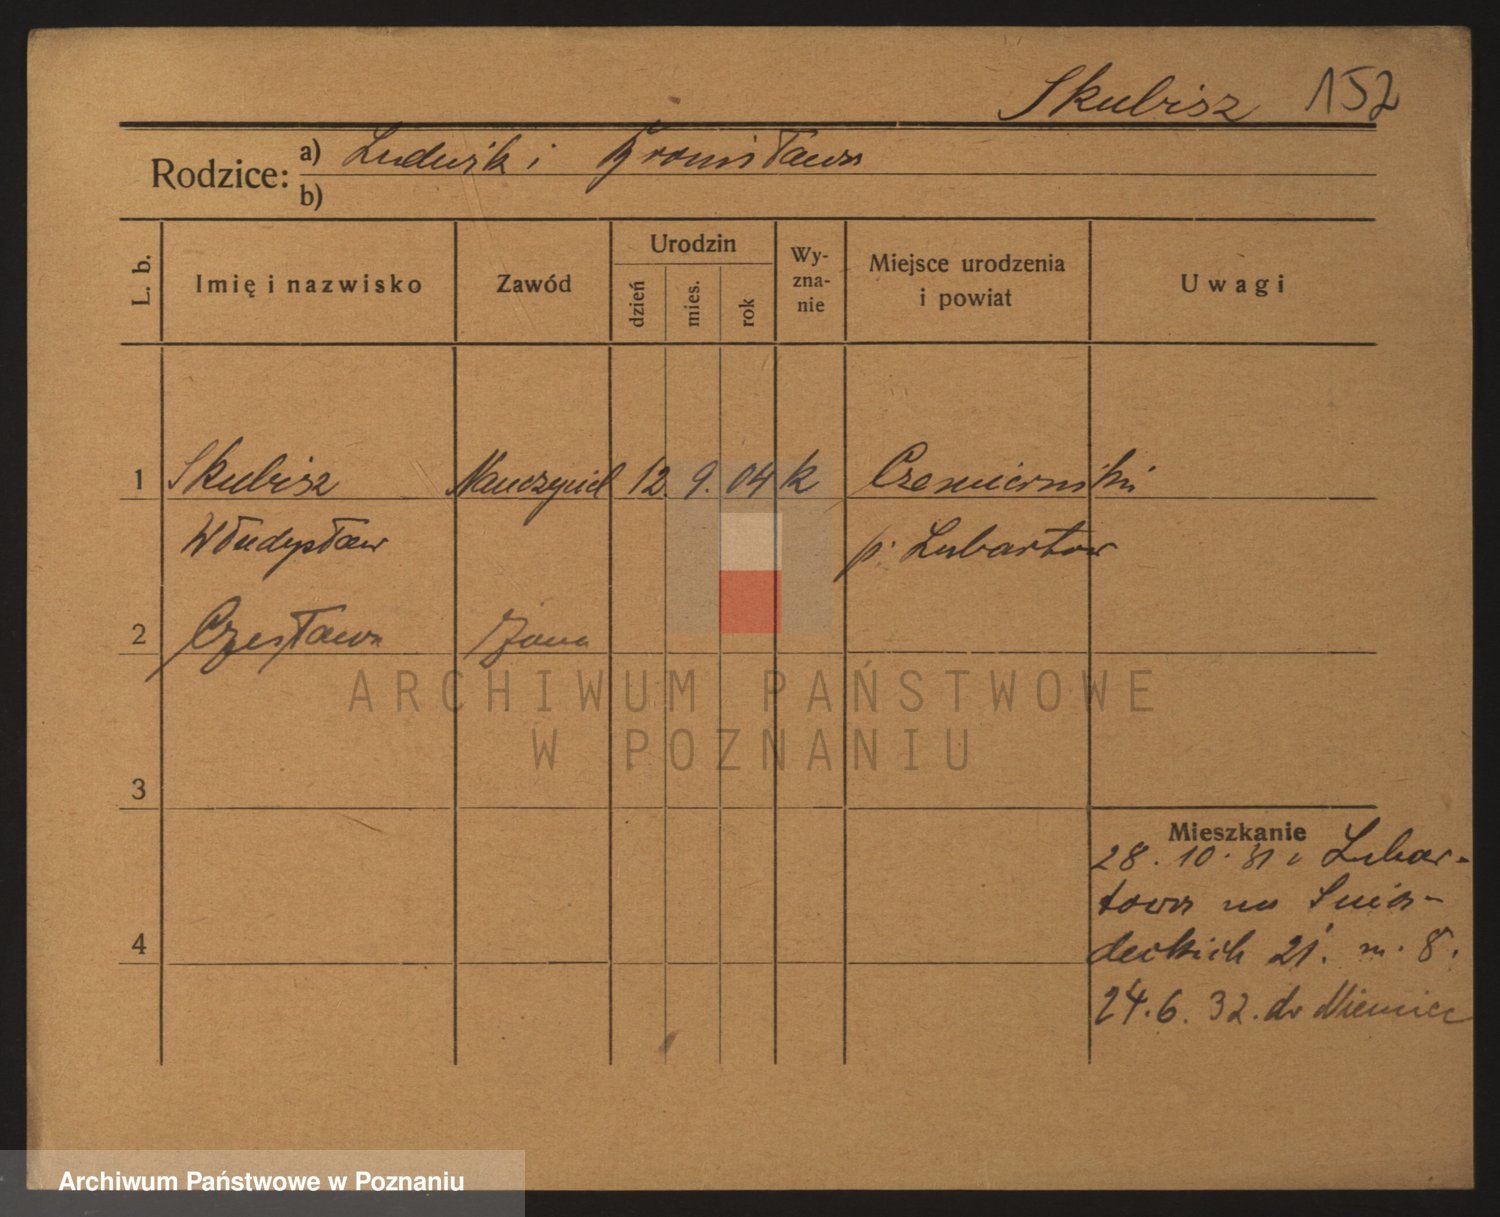 Skubisz 152
Rodzice: a) Ludwik i Bronisława
b)
L. b. Imię i nazwisko Zawód Urodzin dzień mies. rok Wy-zna-nie Miejsce urodzenia i powiat Uwagi
1 Skubisz Nauczyciel 12. 9. 04 k Czemierniki
Władysław p. Lubartow
2 Czesława Żona
ARCHIWUM PAŃSTWOWE
W POZNANIU
3
Mieszkanie
28. 10. 31 z Lubar-
towa na Śnia-
4 deckich 21. m. 8.
24. 6. 32. do Niemiec
Archiwum Państwowe w Poznaniu